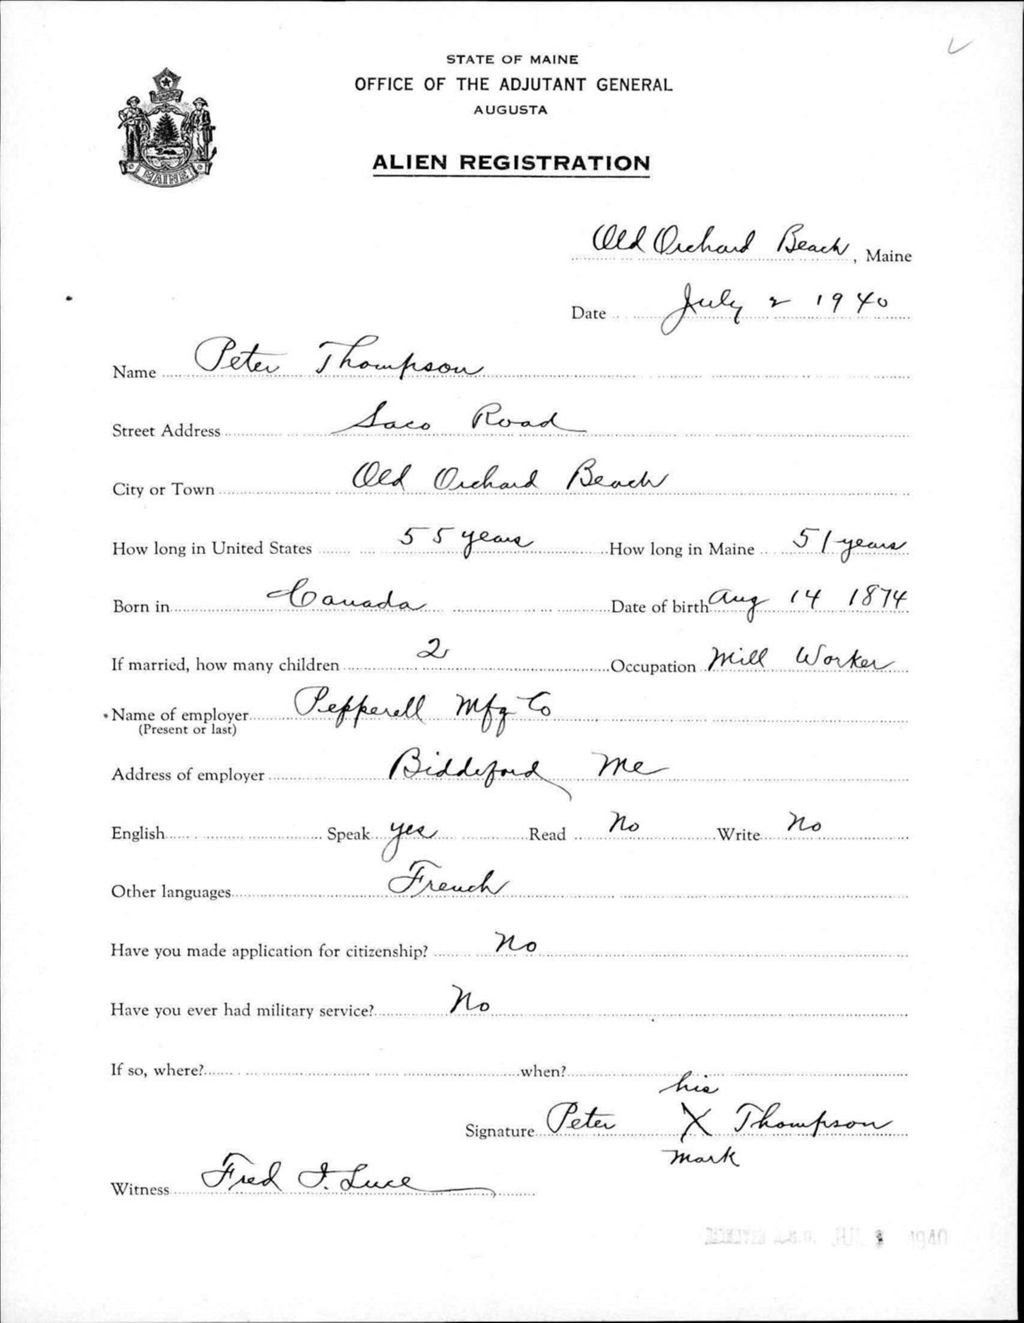 STATE OF MAINE
OFFICE OF THE ADJUTANT GENERAL
AUGUSTA
MAINE
ALIEN REGISTRATION
Old Orchard Beach, Maine
Date July 2 1940
Name Peter Thompson
Street Address Saco Road
City or Town Old Orchard Beach
How long in United States 55 years How long in Maine 51 years
Born in Canada Date of birth Aug 14 1874
If married, how many children 2 Occupation Mill Worker
Name of employer Pepperell Mfg Co
(Present or last)
Address of employer Biddeford Me
English Speak yes Read No Write No
Other languages French
Have you made application for citizenship? No
Have you ever had military service? No
If so, where? when?
his
Signature Peter X Thompson
mark
Witness Fred I. Luce
1940